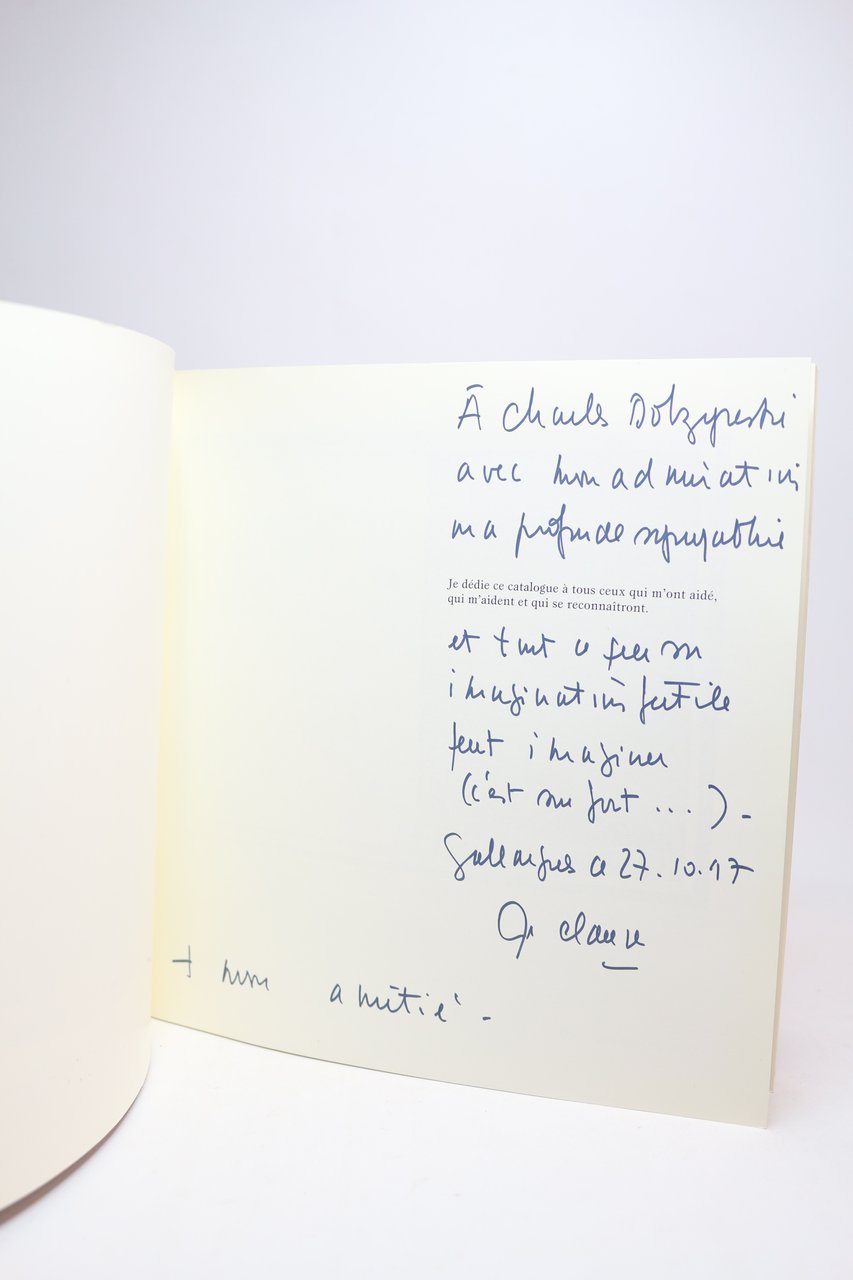 À Charles Dobzynski
avec mon admiration
ma profonde sympathie
Je dédie ce catalogue à tous ceux qui m'ont aidé,
qui m'aident et qui se reconnaîtront.
et tout ce que son
imagination fertile
peut imaginer
(c'est son fort ...) -
ce 27.10.97
+ mon amitié -